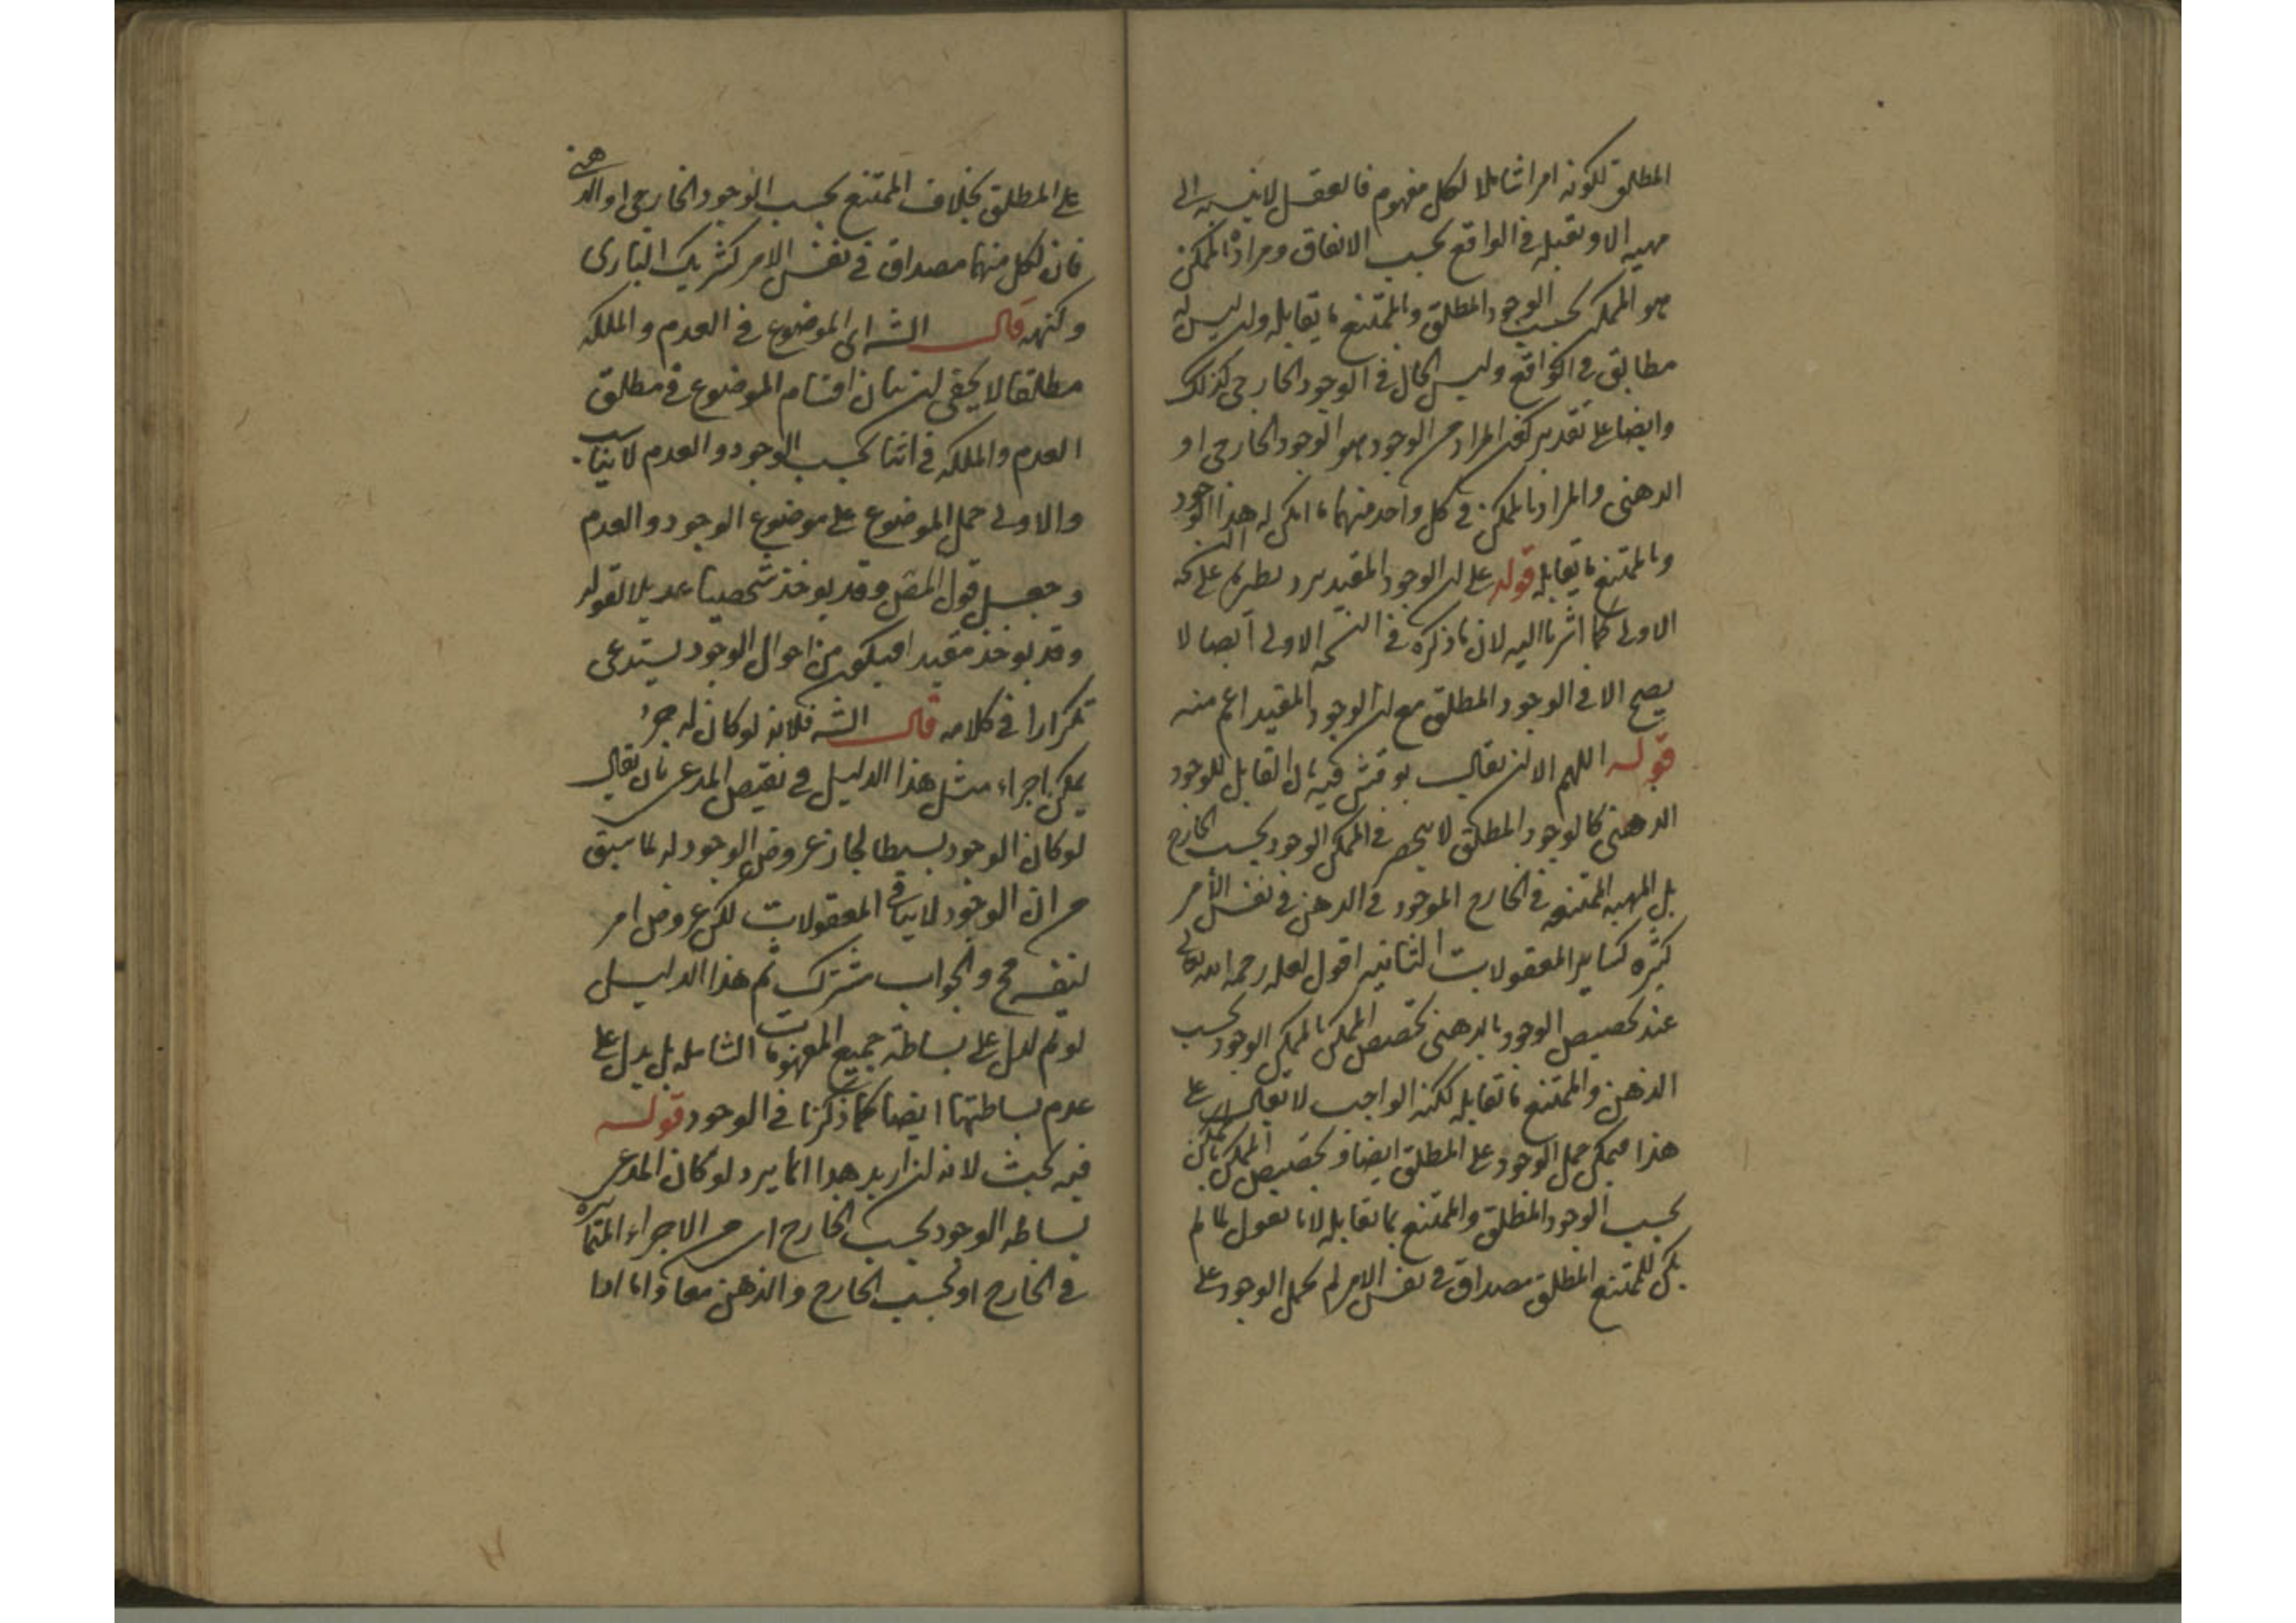 المطلق لكونه امرا شاملا لكل مفهوم فالعقل لا ينسبه الى
مهية الا و تقبله في الواقع بحسب الاتفاق و مراده بالممكن
هو الممكن بحسب الوجود المطلق و بالممتنع ما يقابله وان ليس له
مطابق في الواقع وليس الحال في الوجود الخارجي كذلك
وايضا على تقدير كون المراد من الوجود هو الوجود الخارجي او
الذهني والمراد بالممكن في كل واحد منهما ما امكن له هذا الوجود
وبالممتنع ما يقابله قوله على ان الوجود المقيد يرد بطريق على
الاولى كما اشرنا اليه لان ما ذكره في النسخه الاولى ايضا لا
يصح الا في الوجود المطلق مع ان الوجود المقيد اعم منه
قوله اللهم الا ان يقال نوقش فيه بان القابل للوجود
الذهني كالوجود المطلق لا ينحصر في الممكن الوجود بحسب الخارج
بل المهية الممتنعة في الخارج الموجود في الذهن في نفس الأمر
كثيره كساير المعقولات الثانيه اقول لعله رحمه الله تعالى
عند تخصيص الوجود بالذهني تخصيص الممكن بالممكن الوجود بحسب
الذهن والممتنع بما تقابله لكنه الواجب لا يقال على
هذا فيمكن حمل الوجود على المطلق ايضا و تخصيص الممكن بالممكن
بحسب الوجود المطلق والممتنع بما تقابله لانا نقول لما لم
يكن للممتنع المطلق مصداق في نفس الامر لم يحمل الوجود على
على المطلق بخلاف الممتنع بحسب الوجود الخارجي او الذهني
فان لكل منهما مصداق في نفس الامر كشريك الباري
وكنهه قال الشه اى الموضوع في العدم و الملكه
مطلقا لا يخفى ان بيان اقسام الموضوع في مطلق
العدم والملكه في اثنا بحسب الوجود و العدم لا يناسب
والاولى حمل الموضوع على موضوع الوجود و العدم
وجعل قول المص وقد يوخذ شخصيا عديلا لقوله
وقد يوخذ مقيدا فيكون من احوال الوجود يستدعى
تكرارا في كلامه قال الشه فلانه لو كان له جزء
يمكن اجراء مثل هذا الدليل في نقيض المدعى بان يقال
لو كان الوجود بسيطا لجاز عروض الوجود له لما سبق
من ان الوجود لا ينافى المعقولات لكن عروض امر
لنفسه مح والجواب مشترك ثم هذا الدليل
لو تم لدل على بساطة جميع المفهومات الشامله بل يدل على
عدم بساطتها ايضا كما ذكرنا في الوجود قوله
فيه بحث لانه ان اريد هذا انما يرد لو كان المدعى
بساطه الوجود بحسب الخارج اى من الاجزاء المتمايزه
في الخارج او بحسب الخارج والذهن معا و اما اذا